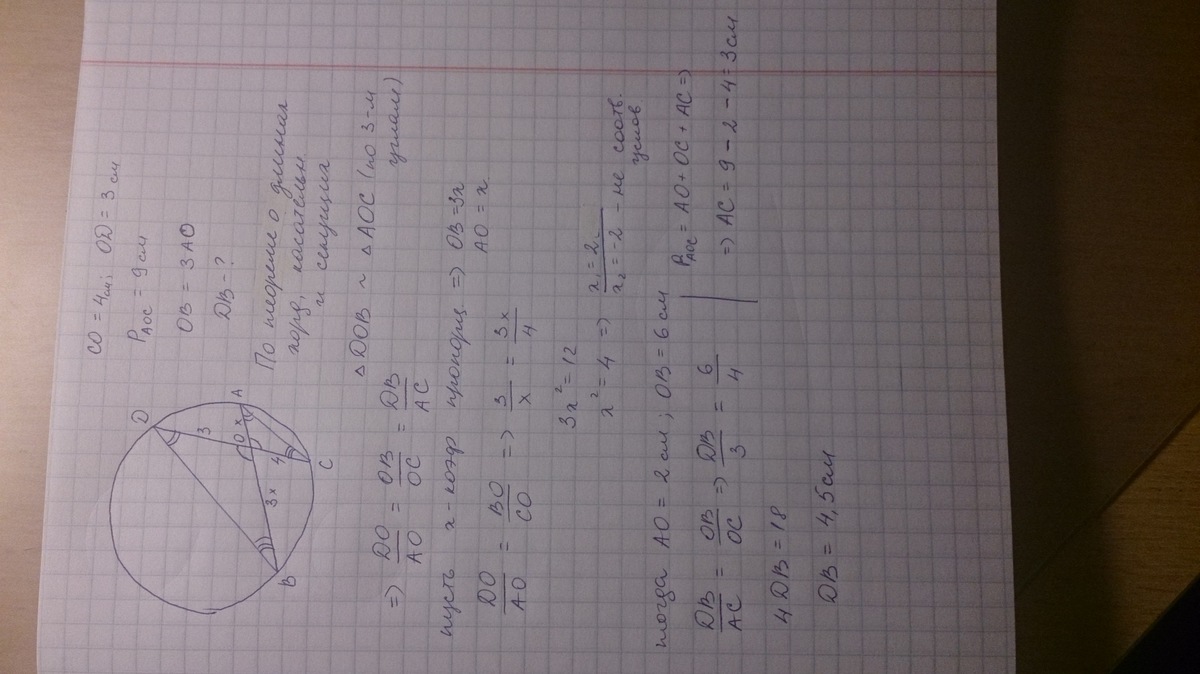 CO = 4 см; OD = 3 см
P_AOC = 9 см
OB = 3 AO
DB - ?
По теореме о длинах
хорд, касательн.
и секущих
D
3
A
O x
4
3x
C
B
△DOB ~ △AOC (по 3-м
углам)
=> DO/AO = OB/OC = DB/AC
пусть x - коэф пропорц => OB = 3x
AO = x
DO/AO = BO/CO => 3/x = 3x/4
3x² = 12
x² = 4 => x₁ = 2
x₂ = -2 - не соотв.
услов
тогда AO = 2 см; OB = 6 см
DB/AC = OB/OC => DB/3 = 6/4
P_AOC = AO + OC + AC =>
=> AC = 9 - 2 - 4 = 3 см
4 DB = 18
DB = 4,5 см